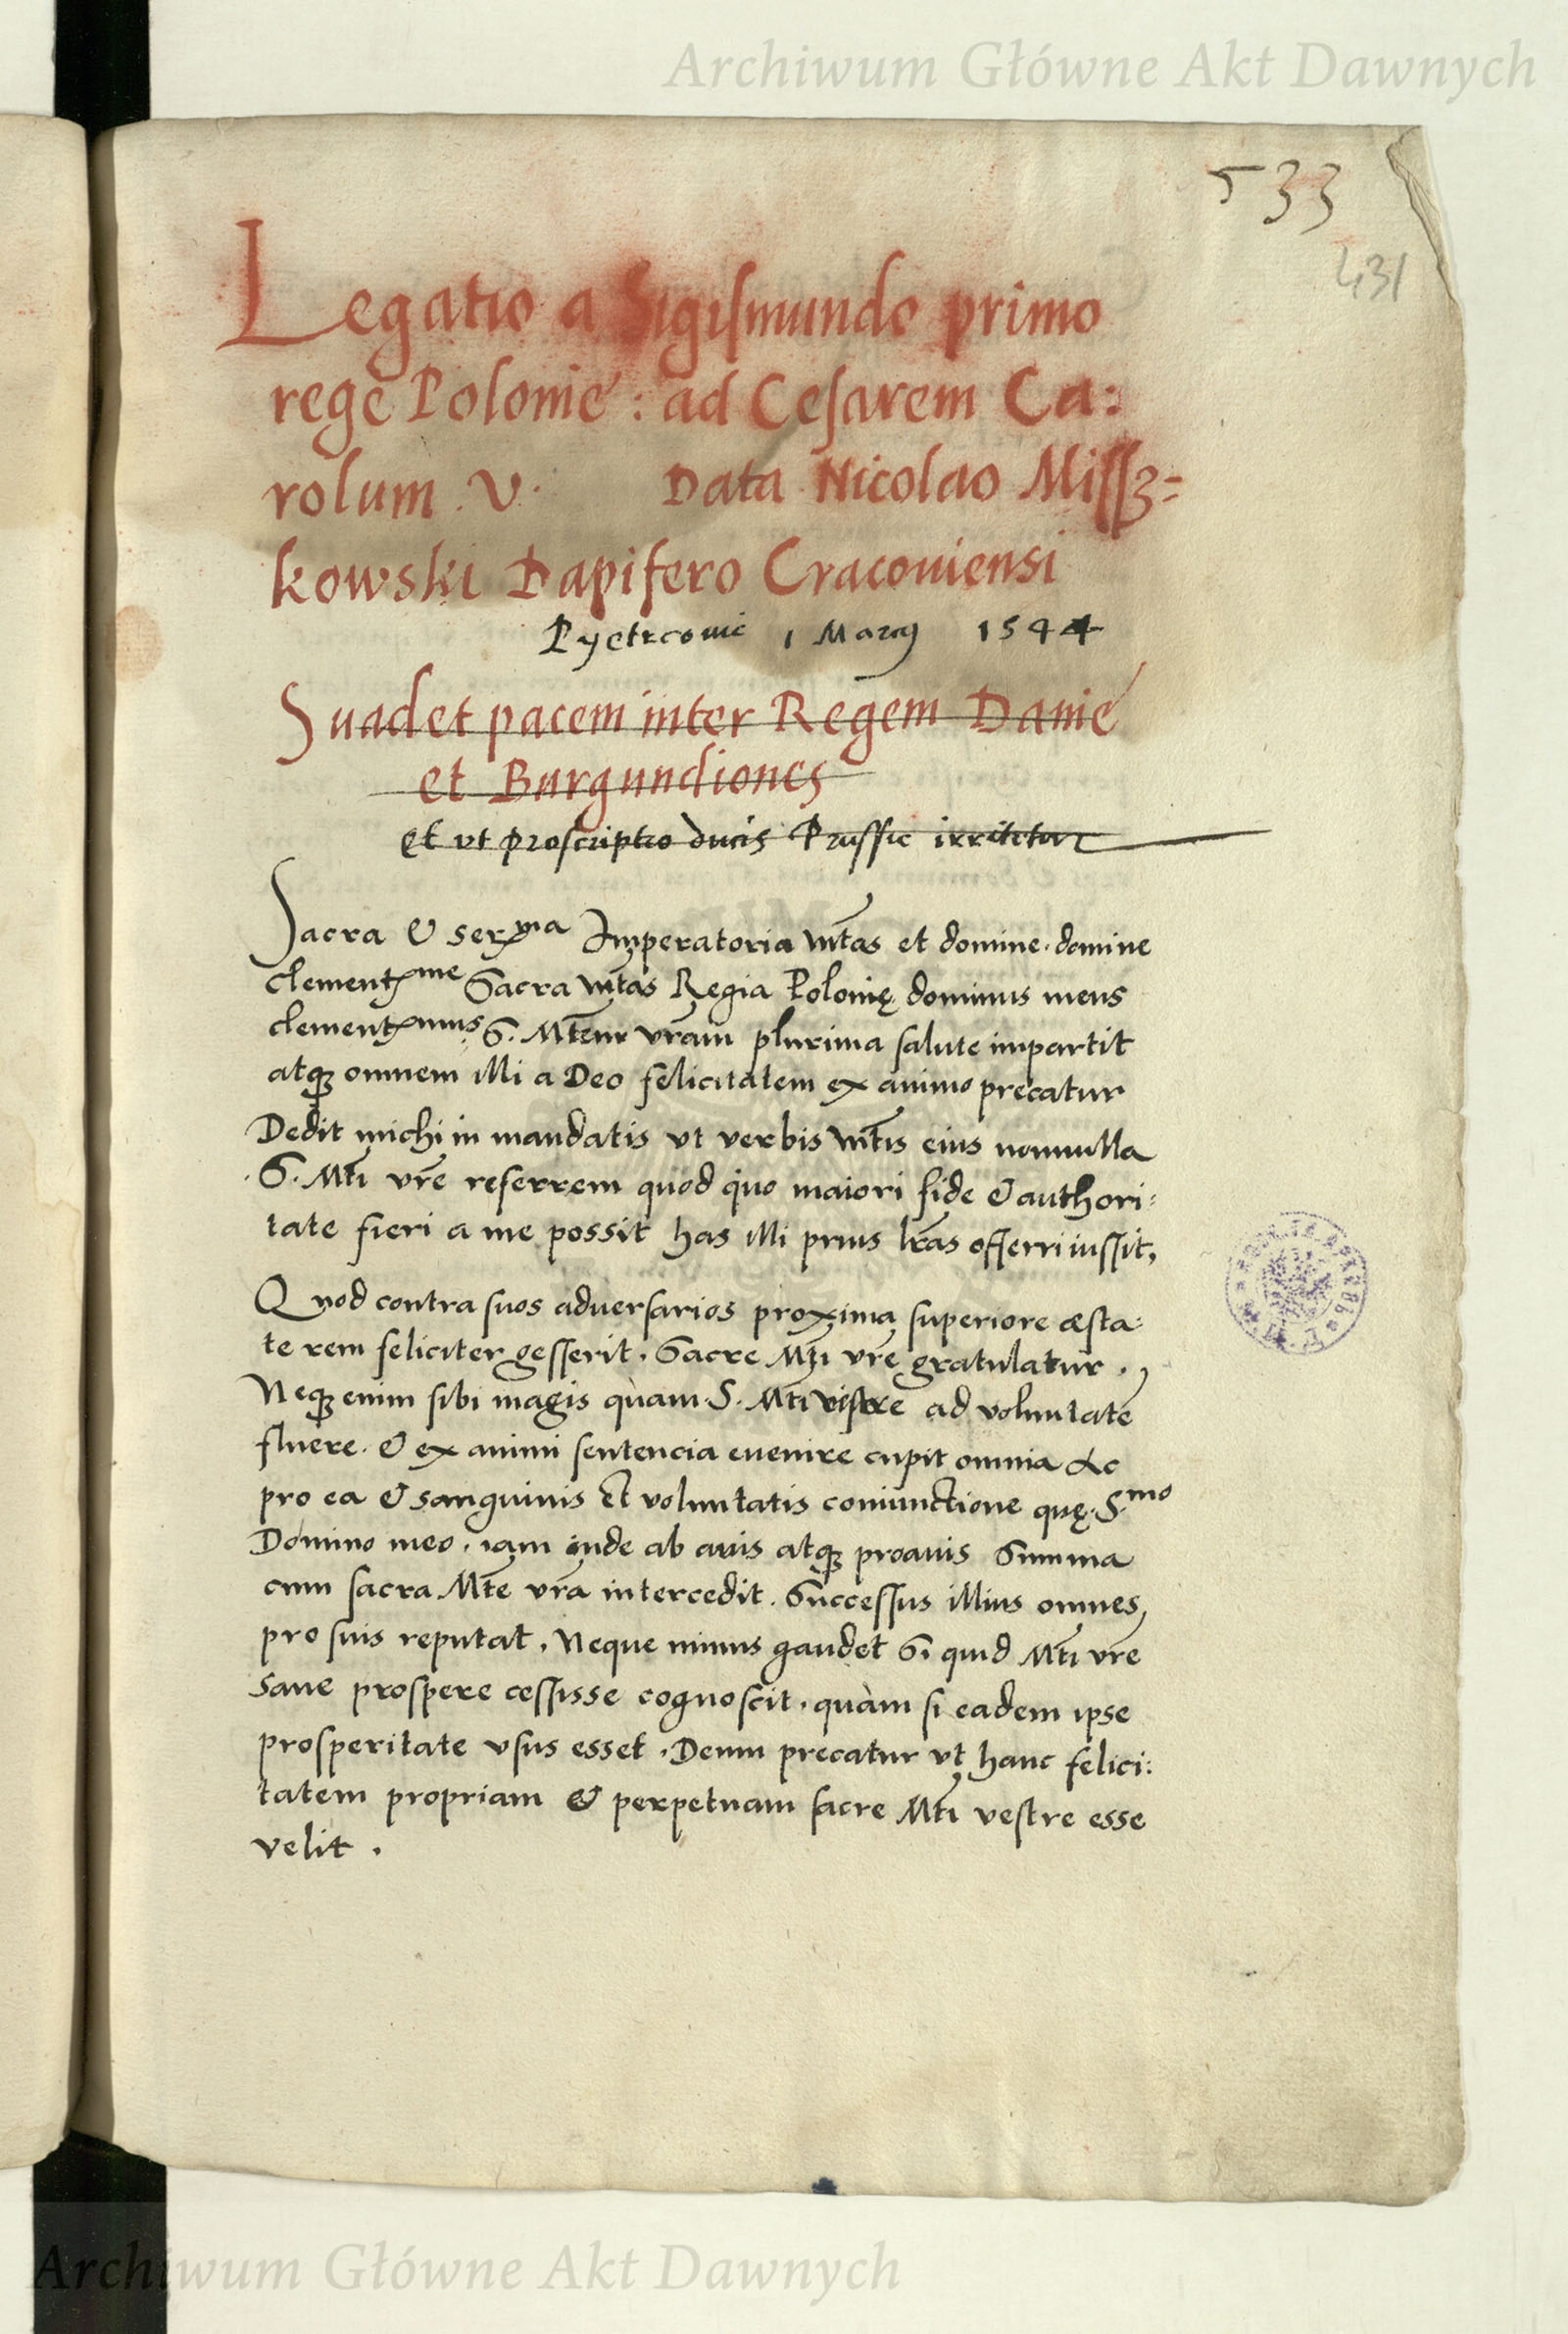 Archiwum Główne Akt Dawnych
533
431
Legatio a Sigismundo primo
rege Polonie: ad Cesarem Ca:
rolum. V. Data Nicolao Missz=
kowski Dapifero Cracouiensi
Pyetrcouie 1 Marcij 1544
Suadet pacem inter Regem Danie
et Burgundiones
et vt proscriptio ducis Prussie irritetur
Sacra & serma Imperatoria Mtas et domine. domine
clementme Sacra Mtas Regia Polonię dominus meus
clementmus S. Mtem vram plurima salute impartit
atq omnem illi a Deo felicitatem ex animo precatur
Dedit michi in mandatis vt verbis Mtis eius nonnulla
S. Mti vre referrem quod quo maiori fide & authori:
tate fieri a me possit has illi prius lras offerri iussit,
Quod contra suos adversarios proxima superiore æsta:
te rem feliciter gesserit. Sacre Mti vre gratulatur.,
Neq enim sibi magis quàm S. Mti vestre ad voluntatē
fluere. & ex animi sentencia euenire cupit omnia ac
pro ea & sanguinis et voluntatis coniunctione quę. S.mo
Domino meo. iam inde ab auis atq proauis Summa
cum sacra Mte vra intercedit. Successus illius omnes,
pro suis reputat, Neque minus gaudet Si quid Mti vre
sane prospere cessisse cognoscit. quàm si eadem ipse
prosperitate vsus esset. Deum precatur vt hanc felici:
tatem propriam & perpetuam sacre Mti vestre esse
velit.
Archiwum Główne Akt Dawnych